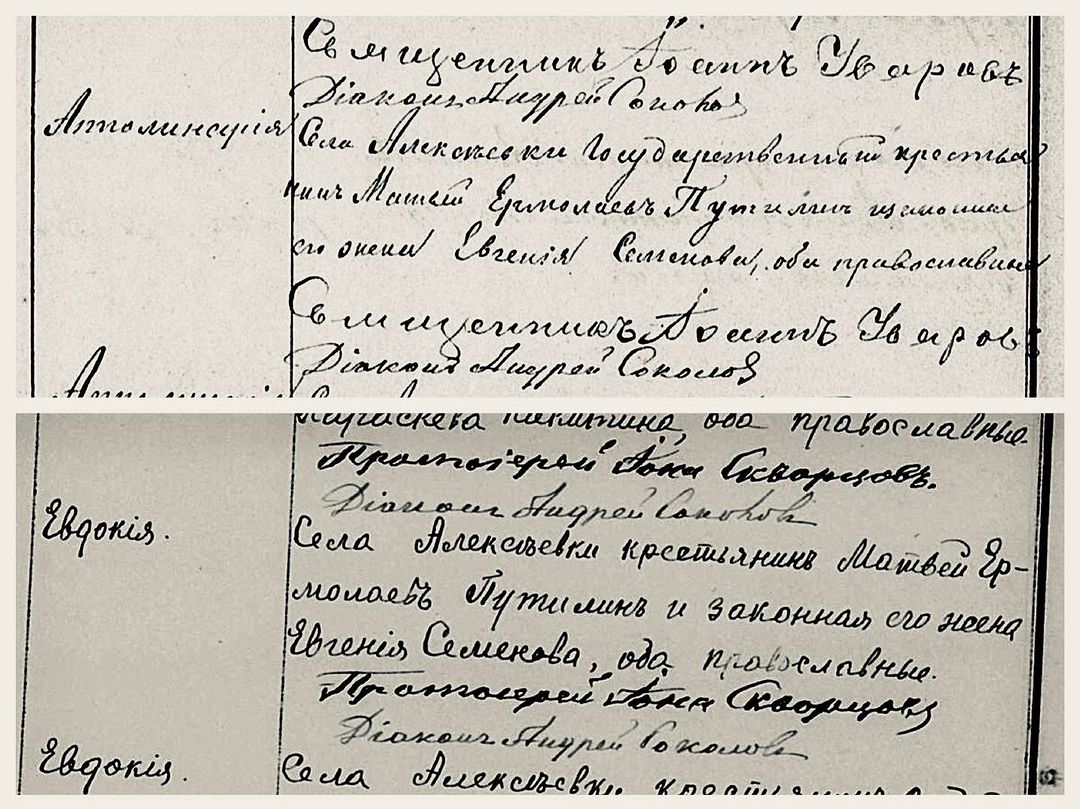 Священникъ Іоаннъ Уваровъ
Діаконъ Андрей Соколов
Апполинарія
Села Алексѣевки Государственный крестья
нинъ Матвей Ермолаевъ Путилинъ изаконная
его жена Евгенія Семенова, оба православные
Священникъ Іоаннъ Уваровъ
Діаконъ Андрей Соколов
Параскева Никитина, оба православные
Протоіерей Іона Скворцовъ.
Діаконъ Андрей Соколовъ
Евдокія.
Села Алексѣевки крестьянинъ Матвей Ер-
молаевъ Путилинъ и законная его жена
Евгенія Семенова, оба православные.
Протоіерей Іона Скворцовъ
Діаконъ Андрей Соколовъ
Евдокія.
Села Алексѣевки крестьянинъ